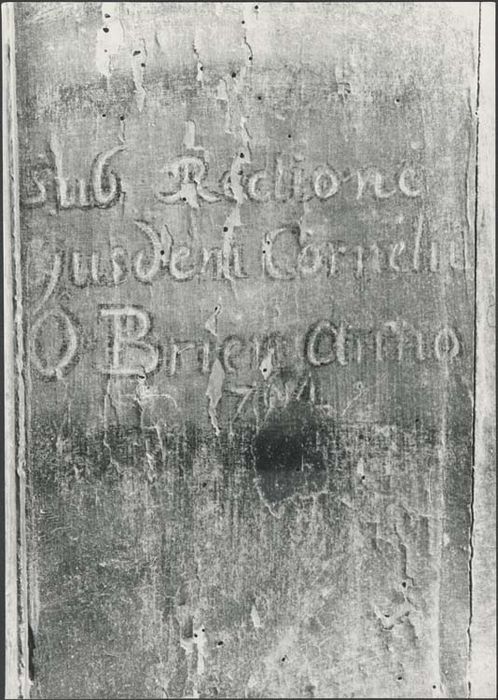 sub Rectione
ejusdem Cornelii
O Brien anno